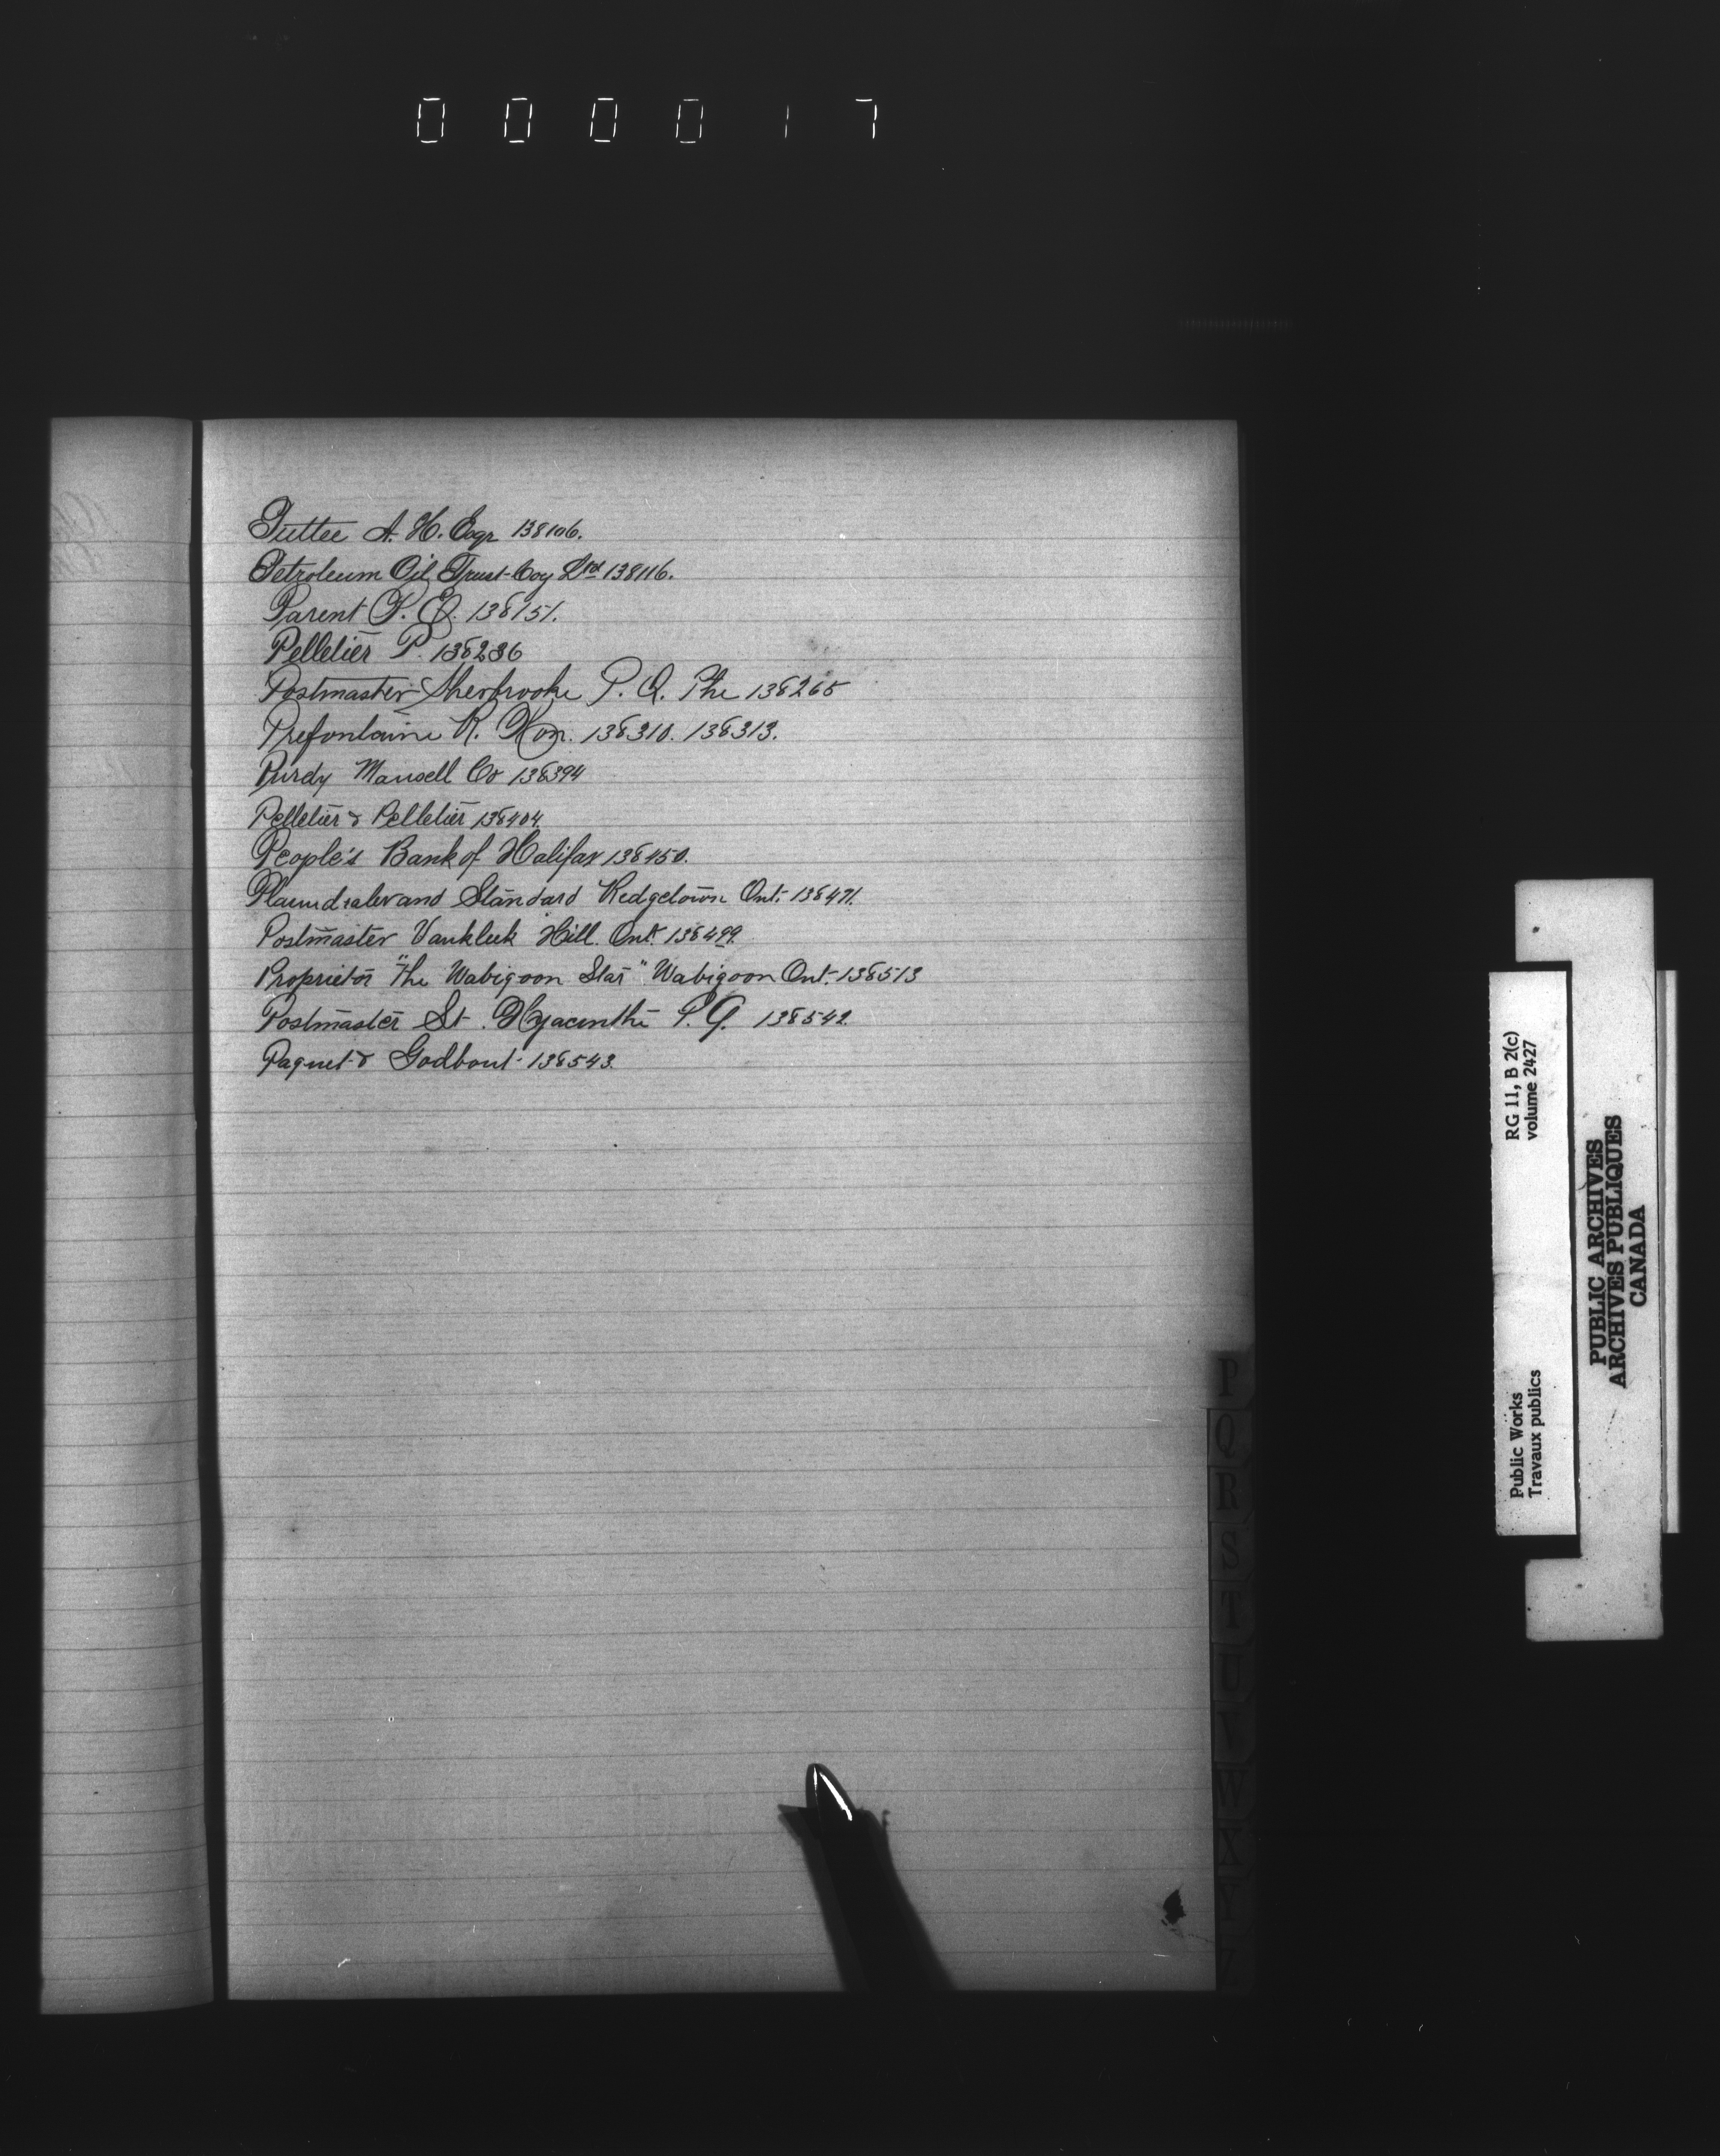 000017
Puttee A. H. Esqr 138106.
Petroleum Oil Trust Coy Ltd 138116.
Parent P. E. 138151.
Pelletier P. 138236
Postmaster Sherbrooke P. Q. The 138265
Prefontaine R. Hon. 138310. 138313.
Purdy Mansell Co 138394
Pelletier & Pelletier 138404.
People's Bank of Halifax 138450.
Plaindealer and Standard Ridgetown Ont. 138471.
Postmaster Vankleek Hill. Ont. 138499.
Proprietor "The Wabigoon Star" Wabigoon Ont. 138513
Postmaster St. Hyacinthe P.Q. 138542.
Paquet & Godbout 138543.
P
Q
R
S
T
U
V
W
X
Y
Z
Public Works
Travaux publics
RG 11, B 2(c)
volume 2427
PUBLIC ARCHIVES
ARCHIVES PUBLIQUES
CANADA